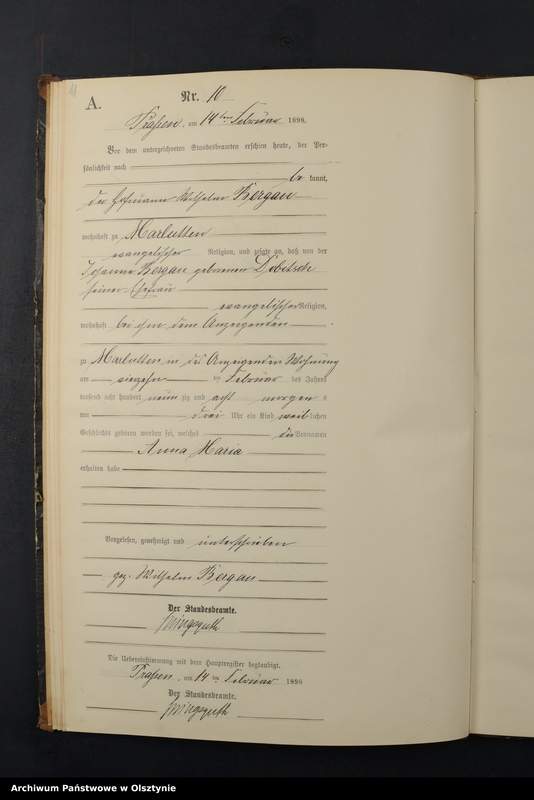 11
A.
Nr. 10
Praßen, am 14ten Februar 1898.
Vor dem unterzeichneten Standesbeamten erschien heute, der Per-
sönlichkeit nach
be kannt,
der Hofmann Wilhelm Kergau
wohnhaft zu Marlutten
evangelischer Religion, und zeigte an, daß von der
Johanna Kergau geborenen
seiner Ehefrau
evangelischer Religion,
wohnhaft bei ihm dem Anzeigenden
zu Marlutten, in des Anzeigenden Wohnung
am vierzehn ten Februar des Jahres
tausend acht hundert neun zig und acht morgen s
um drei Uhr ein Kind weib lichen
Geschlechts geboren worden sei, welches die Vornamen
Anna Maria
erhalten habe
Vorgelesen, genehmigt und unterschrieben
gez. Wilhelm Kergau
Der Standesbeamte.
Die Uebereinstimmung mit dem Hauptregister beglaubigt.
Praßen, am 14 ten Februar 1898
Der Standesbeamte.
Archiwum Państwowe w Olsztynie